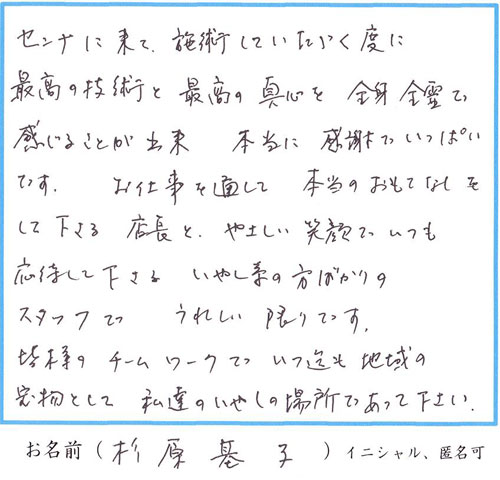 センナに来て、施術していただく度に
最高の技術と 最高の真心を 全身全霊で
感じることが出来 本当に 感謝でいっぱい
です. お仕事を通して 本当のおもてなしを
して下さる 店長と、やさしい笑顔でいつも
応待して下さる いやし系の方ばかりの
スタッフで うれしい限りです.
皆様の チームワークで いつ迄も 地域の
宝物として 私達のいやしの場所であって下さい.
お名前(杉原基子)イニシャル、匿名可